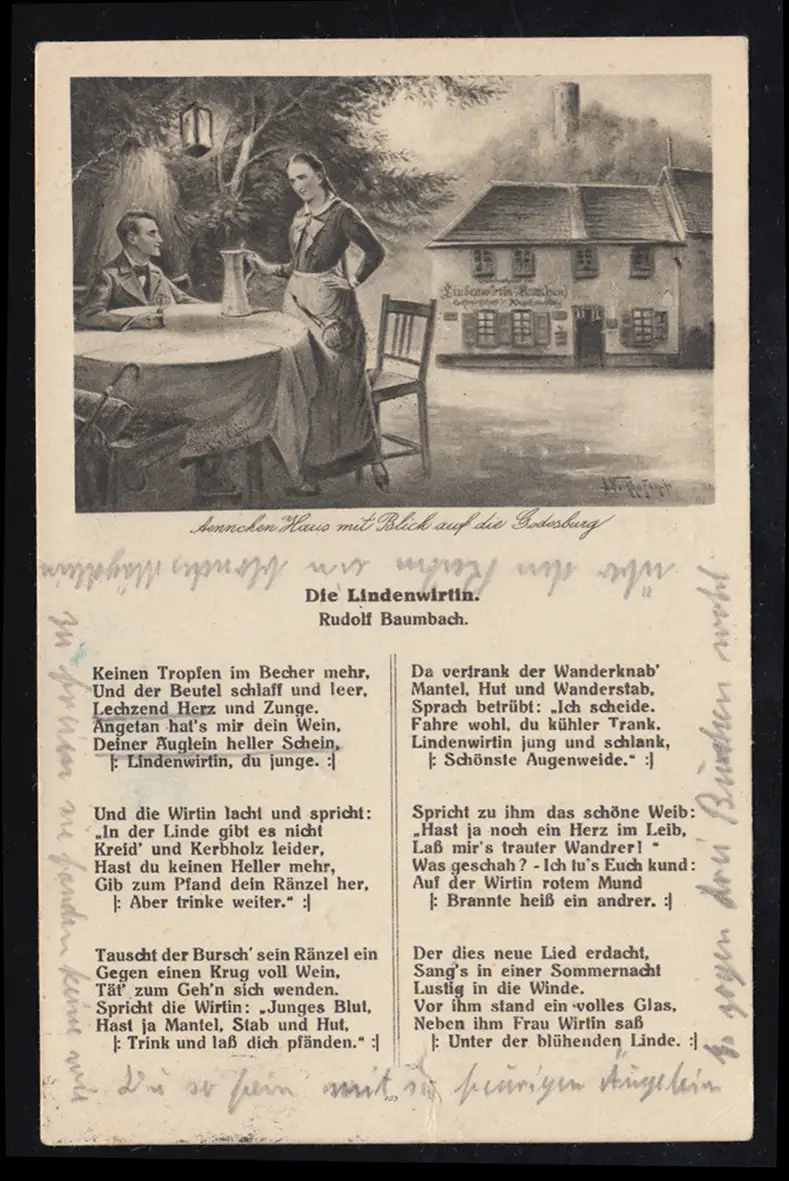 Lindenwirtin
Aennchen Haus mit Blick auf die Godesburg
über den Rhein
Die Lindenwirtin.
Rudolf Baumbach.
Keinen Tropfen im Becher mehr,
Und der Beutel schlaff und leer,
Lechzend Herz und Zunge.
Angetan hat's mir dein Wein,
Deiner Äuglein heller Schein,
|: Lindenwirtin, du junge. :|
Und die Wirtin lacht und spricht:
„In der Linde gibt es nicht
Kreid' und Kerbholz leider,
Hast du keinen Heller mehr,
Gib zum Pfand dein Ränzel her,
|: Aber trinke weiter." :|
Tauscht der Bursch' sein Ränzel ein
Gegen einen Krug voll Wein,
Tät' zum Geh'n sich wenden.
Spricht die Wirtin: „Junges Blut,
Hast ja Mantel, Stab und Hut,
|: Trink und laß dich pfänden." :|
Da vertrank der Wanderknab'
Mantel, Hut und Wanderstab,
Sprach betrübt: „Ich scheide.
Fahre wohl, du kühler Trank,
Lindenwirtin jung und schlank,
|: Schönste Augenweide." :|
Spricht zu ihm das schöne Weib:
„Hast ja noch ein Herz im Leib,
Laß mir's trauter Wandrer! "
Was geschah? - Ich tu's Euch kund:
Auf der Wirtin rotem Mund
|: Brannte heiß ein andrer. :|
Der dies neue Lied erdacht,
Sang's in einer Sommernacht
Lustig in die Winde.
Vor ihm stand ein volles Glas,
Neben ihm Frau Wirtin saß
|: Unter der blühenden Linde. :|
Es zogen drei Burschen wohl
Du so fein mit so feurigen Äugelein